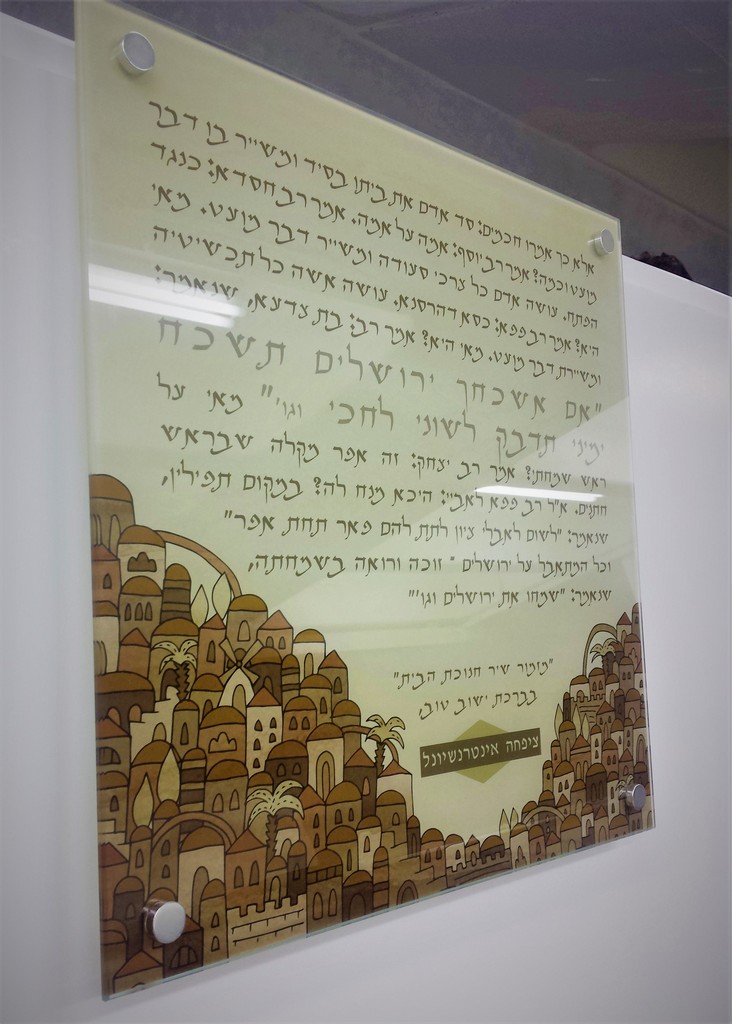 אלא כך אמרו חכמים: סד אדם את ביתו בסיד ומשייר בו דבר
מועט וכמה? אמר רב יוסף: אמה על אמה. אמר רב חסדא: כנגד
הפתח. עושה אדם כל צרכי סעודה ומשייר דבר מועט. מאי
היא? אמר רב פפא: כסא דהרסנא. עושה אשה כל תכשיטיה
ומשיירת דבר מועט. מאי היא? אמר רב: בת צדעא, שנאמר:
"אם אשכחך ירושלים תשכח
ימיני תדבק לשוני לחכי וגו'" מאי על
ראש שמחתי? אמר רב יצחק: זה אפר מקלה שבראש
חתנים. א"ל רב פפא לאביי: היכא מנח לה? במקום תפילין,
שנאמר: "לשום לאבלי ציון לתת להם פאר תחת אפר"
וכל המתאבל על ירושלים - זוכה ורואה בשמחתה,
שנאמר: "שמחו את ירושלים וגו'"
"מזמור שיר חנוכת הבית"
בברכת ישוב טוב,
ציפחה אינטרנשיונל